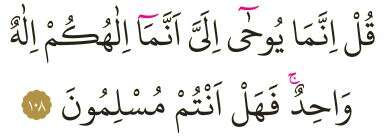 قُلْ اِنَّمَا يُوحٰٓى اِلَيَّ اَنَّمَٓا اِلٰهُكُمْ اِلٰهٌ
وَاحِدٌۚ فَهَلْ اَنْتُمْ مُسْلِمُونَ ﴿١٠٨﴾